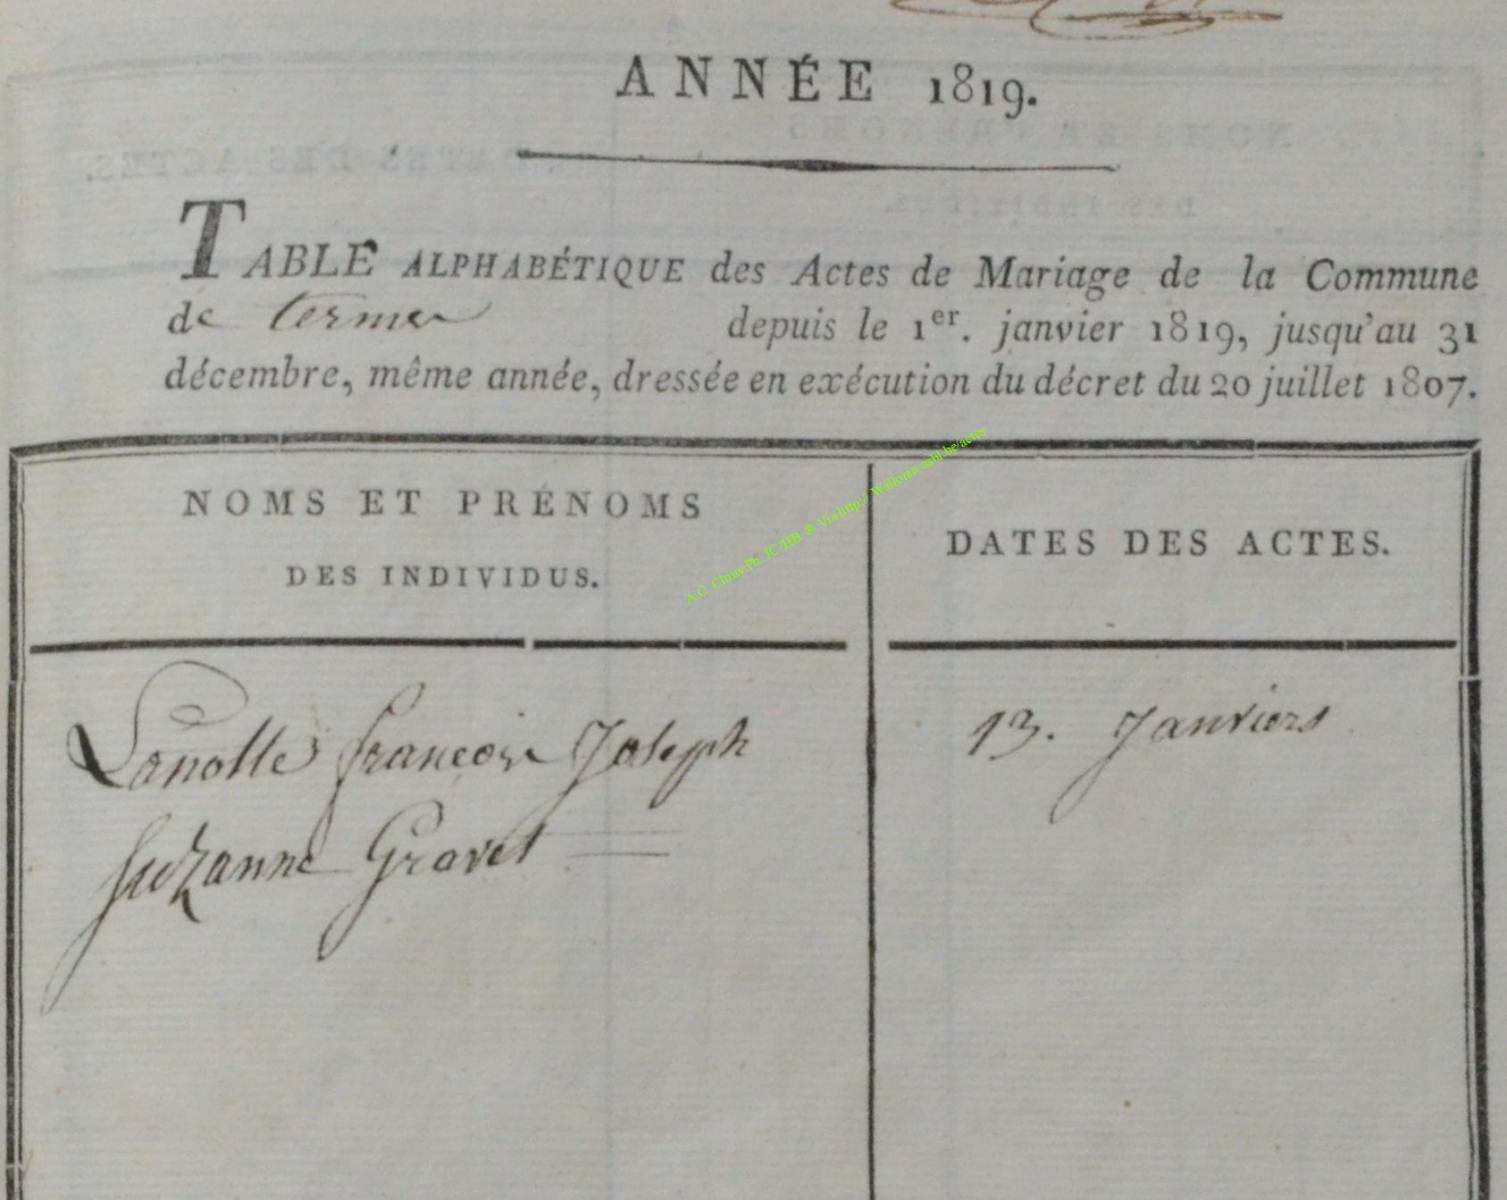 ANNÉE 1819.
TABLE ALPHABÉTIQUE des Actes de Mariage de la Commune
de termes depuis le 1er. janvier 1819, jusqu'au 31
décembre, même année, dressée en exécution du décret du 20 juillet 1807.
NOMS ET PRÉNOMS
DES INDIVIDUS.
DATES DES ACTES.
Lanotte françois Joseph
13. Janviers
Suzanne Gravet